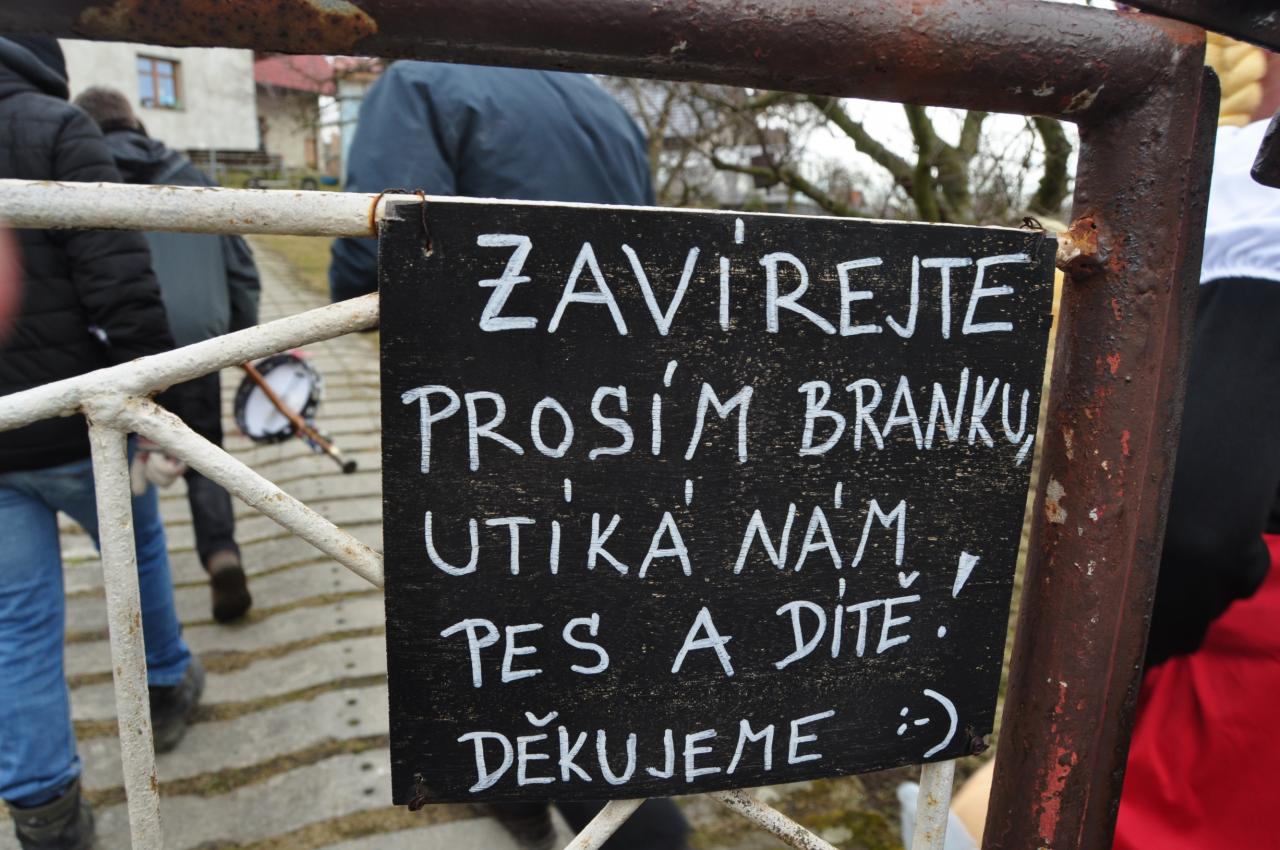 ZAVÍREJTE
PROSÍM BRANKU,
UTÍKÁ NÁM
PES A DÍTĚ!
DĚKUJEME :-)